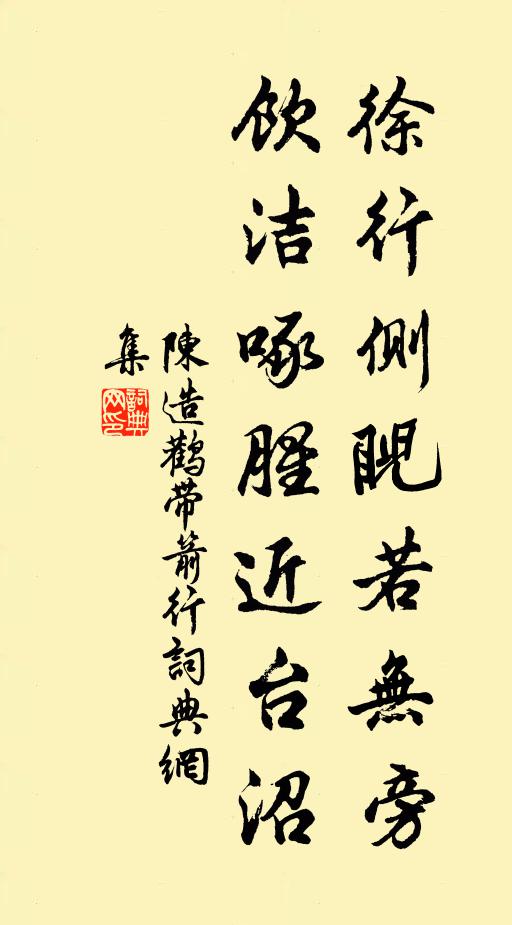 徐行側睨若無旁
飲洁啄腥近台沼
陳造鸛带箭行詞典網
集
詞典网印